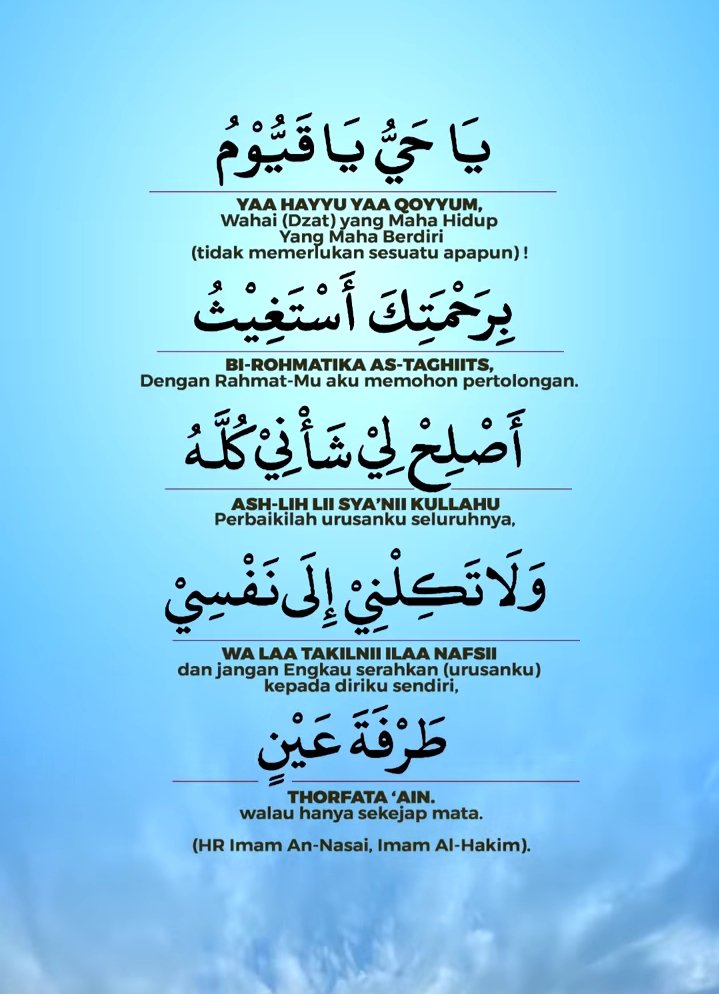 يَا حَيُّ يَا قَيُّوْمُ
YAA HAYYU YAA QOYYUM,
Wahai (Dzat) yang Maha Hidup
Yang Maha Berdiri
(tidak memerlukan sesuatu apapun) !
بِرَحْمَتِكَ أَسْتَغِيْثُ
BI-ROHMATIKA AS-TAGHIITS,
Dengan Rahmat-Mu aku memohon pertolongan.
أَصْلِحْ لِيْ شَأْنِيْ كُلَّهُ
ASH-LIH LII SYA’NII KULLAHU
Perbaikilah urusanku seluruhnya,
وَلَا تَكِلْنِيْ إِلَى نَفْسِيْ
WA LAA TAKILNII ILAA NAFSII
dan jangan Engkau serahkan (urusanku)
kepada diriku sendiri,
طَرْفَةَ عَيْنٍ
THORFATA ‘AIN.
walau hanya sekejap mata.
(HR Imam An-Nasai, Imam Al-Hakim).